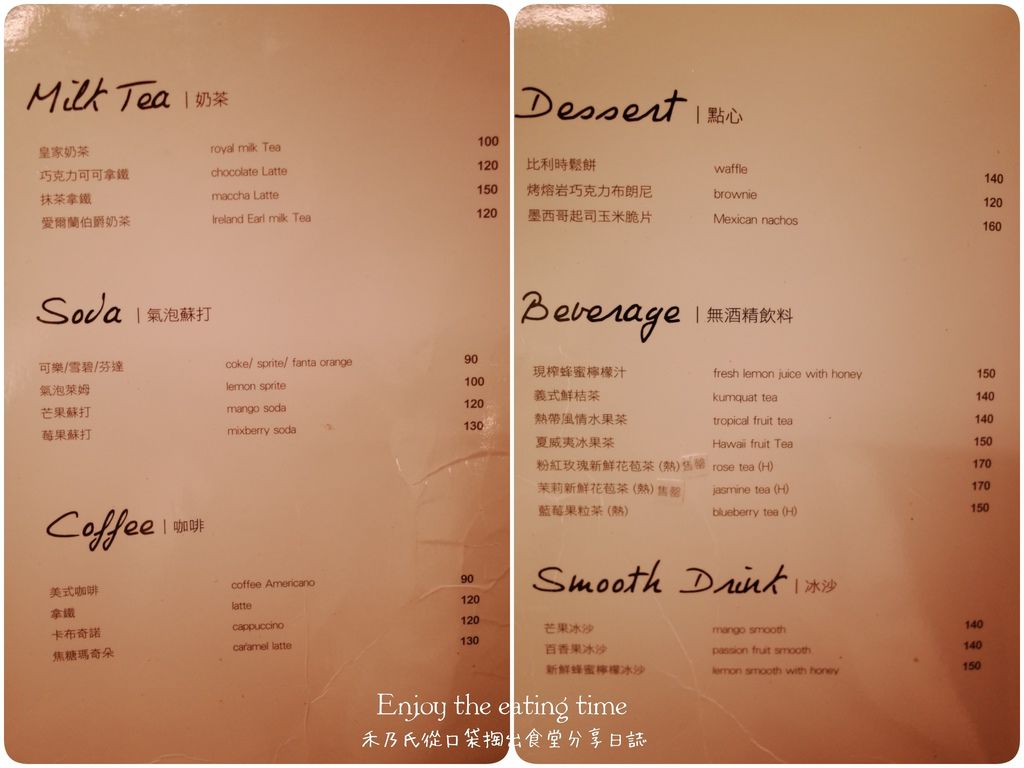 Milk Tea | 奶茶
皇家奶茶 royal milk Tea 100
巧克力可可拿鐵 chocolate Latte 120
抹茶拿鐵 maccha Latte 150
愛爾蘭伯爵奶茶 Ireland Earl milk Tea 120
Soda | 氣泡蘇打
可樂/雪碧/芬達 coke/ sprite/ fanta orange 90
氣泡萊姆 lemon sprite 100
芒果蘇打 mango soda 120
莓果蘇打 mixberry soda 130
Coffee | 咖啡
美式咖啡 coffee Americano 90
拿鐵 latte 120
卡布奇諾 cappuccino 120
焦糖瑪奇朵 caramel latte 130
Dessert | 點心
比利時鬆餅 waffle 140
烤熔岩巧克力布朗尼 brownie 120
墨西哥起司玉米脆片 Mexican nachos 160
Beverage | 無酒精飲料
現榨蜂蜜檸檬汁 fresh lemon juice with honey 150
義式鮮桔茶 kumquat tea 140
熱帶風情水果茶 tropical fruit tea 140
夏威夷冰果茶 Hawaii fruit Tea 150
粉紅玫瑰新鮮花苞茶 (熱) 售罄 rose tea (H) 170
茉莉新鮮花苞茶 (熱) 售罄 jasmine tea (H) 170
藍莓果粒茶 (熱) blueberry tea (H) 150
Smooth Drink | 冰沙
芒果冰沙 mango smooth 140
百香果冰沙 passion fruit smooth 140
新鮮蜂蜜檸檬冰沙 lemon smooth with honey 150
Enjoy the eating time
禾乃氏從口袋掏出食堂分享日誌